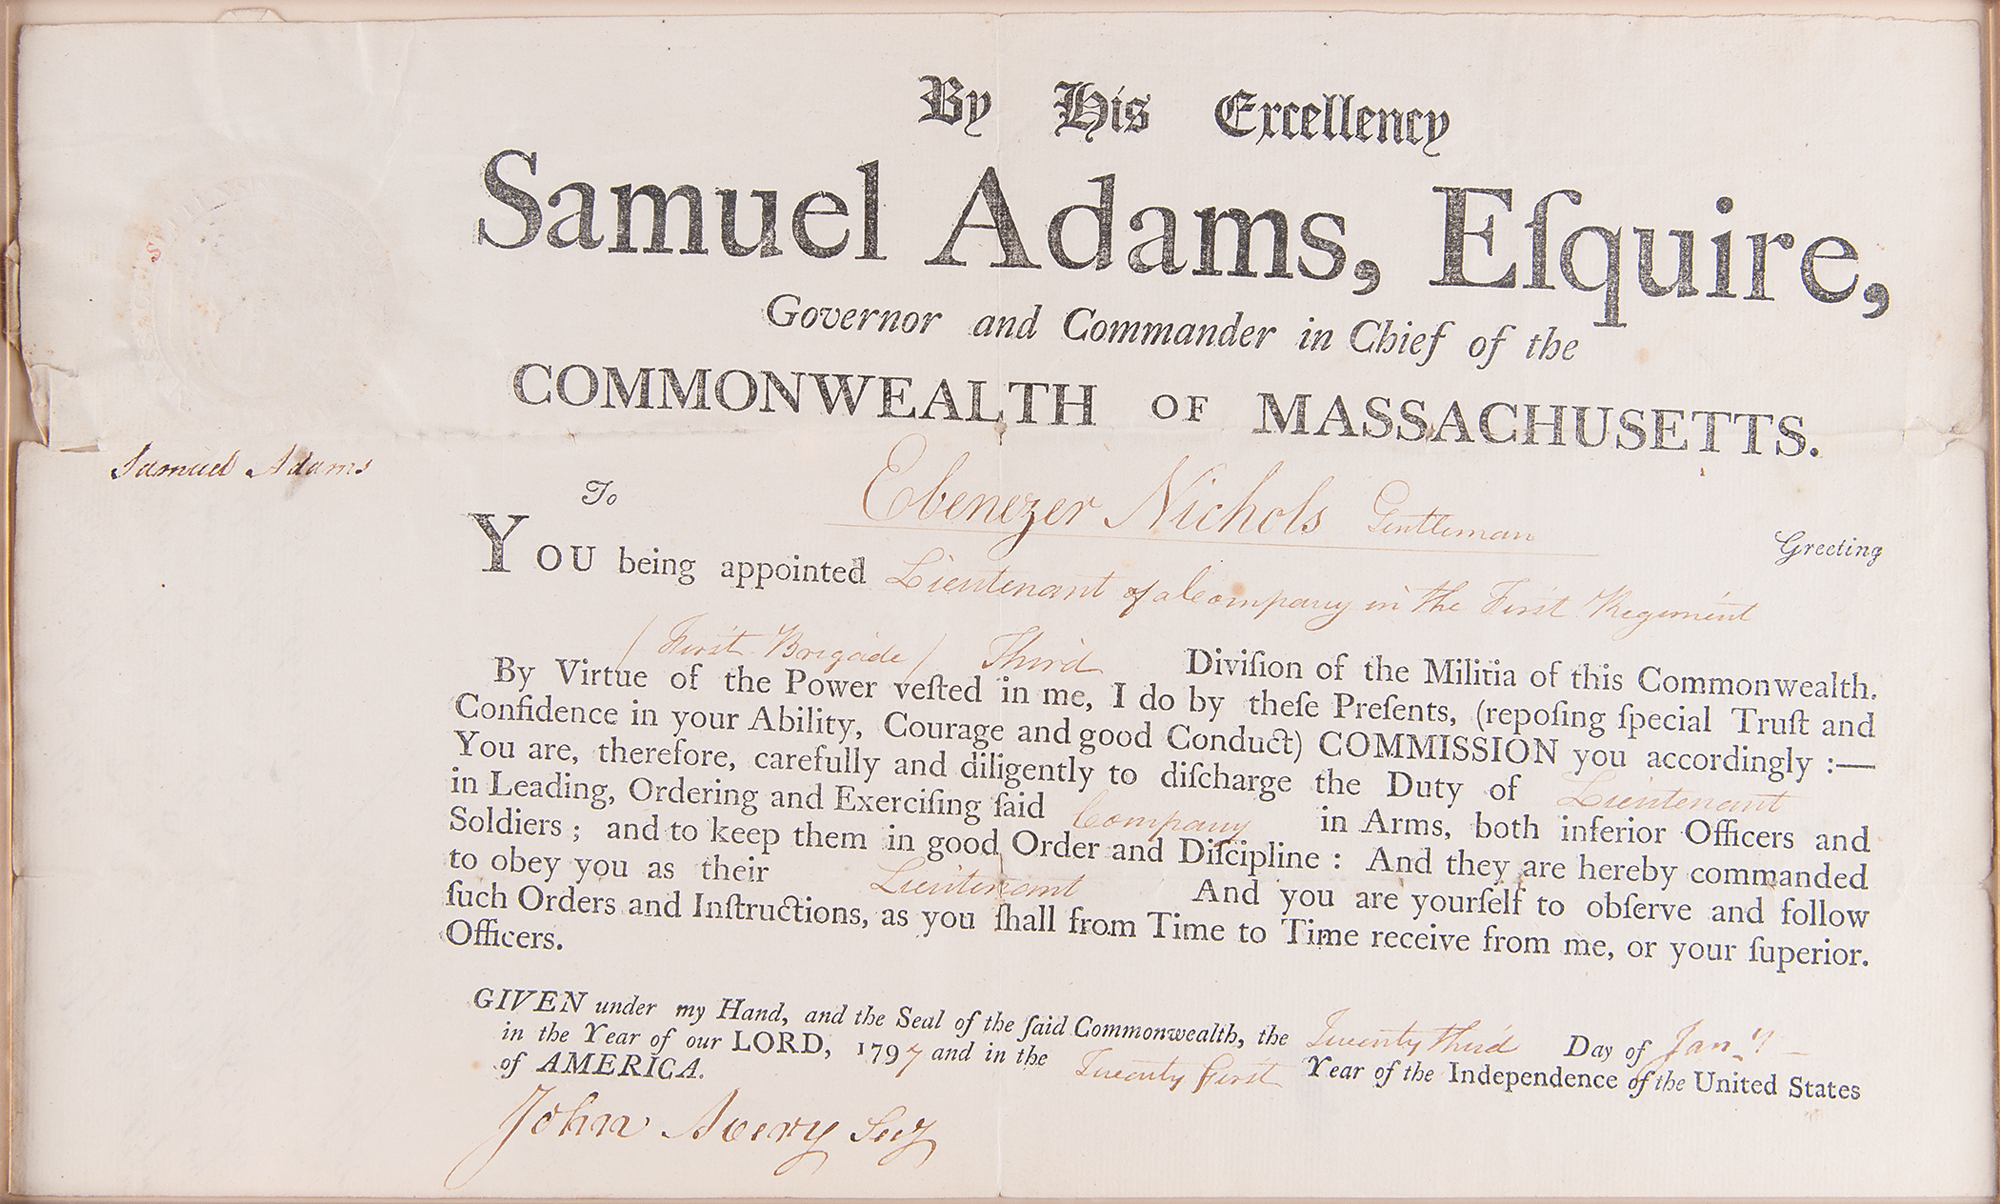 By His Excellency
Samuel Adams, Eſquire,
Governor and Commander in Chief of the
COMMONWEALTH OF MASSACHUSETTS.
Samuel Adams
To Ebenezer Nichols Gentleman Greeting
YOU being appointed Lieutenant of a Company in the First Regiment
(First Brigade) Third Diviſion of the Militia of this Commonwealth.
By Virtue of the Power veſted in me, I do by theſe Preſents, (repoſing ſpecial Truſt and
Confidence in your Ability, Courage and good Conduct) COMMISSION you accordingly :—
You are, therefore, carefully and diligently to diſcharge the Duty of Lieutenant
in Leading, Ordering and Exerciſing ſaid Company in Arms, both inferior Officers and
Soldiers ; and to keep them in good Order and Diſcipline : And they are hereby commanded
to obey you as their Lieutenant And you are yourſelf to obſerve and follow
ſuch Orders and Inſtructions, as you ſhall from Time to Time receive from me, or your ſuperior.
Officers.
GIVEN under my Hand, and the Seal of the ſaid Commonwealth, the Twenty third Day of Jany
in the Year of our LORD, 1797 and in the Twenty First Year of the Independence of the United States
of AMERICA.
John Avery Secy